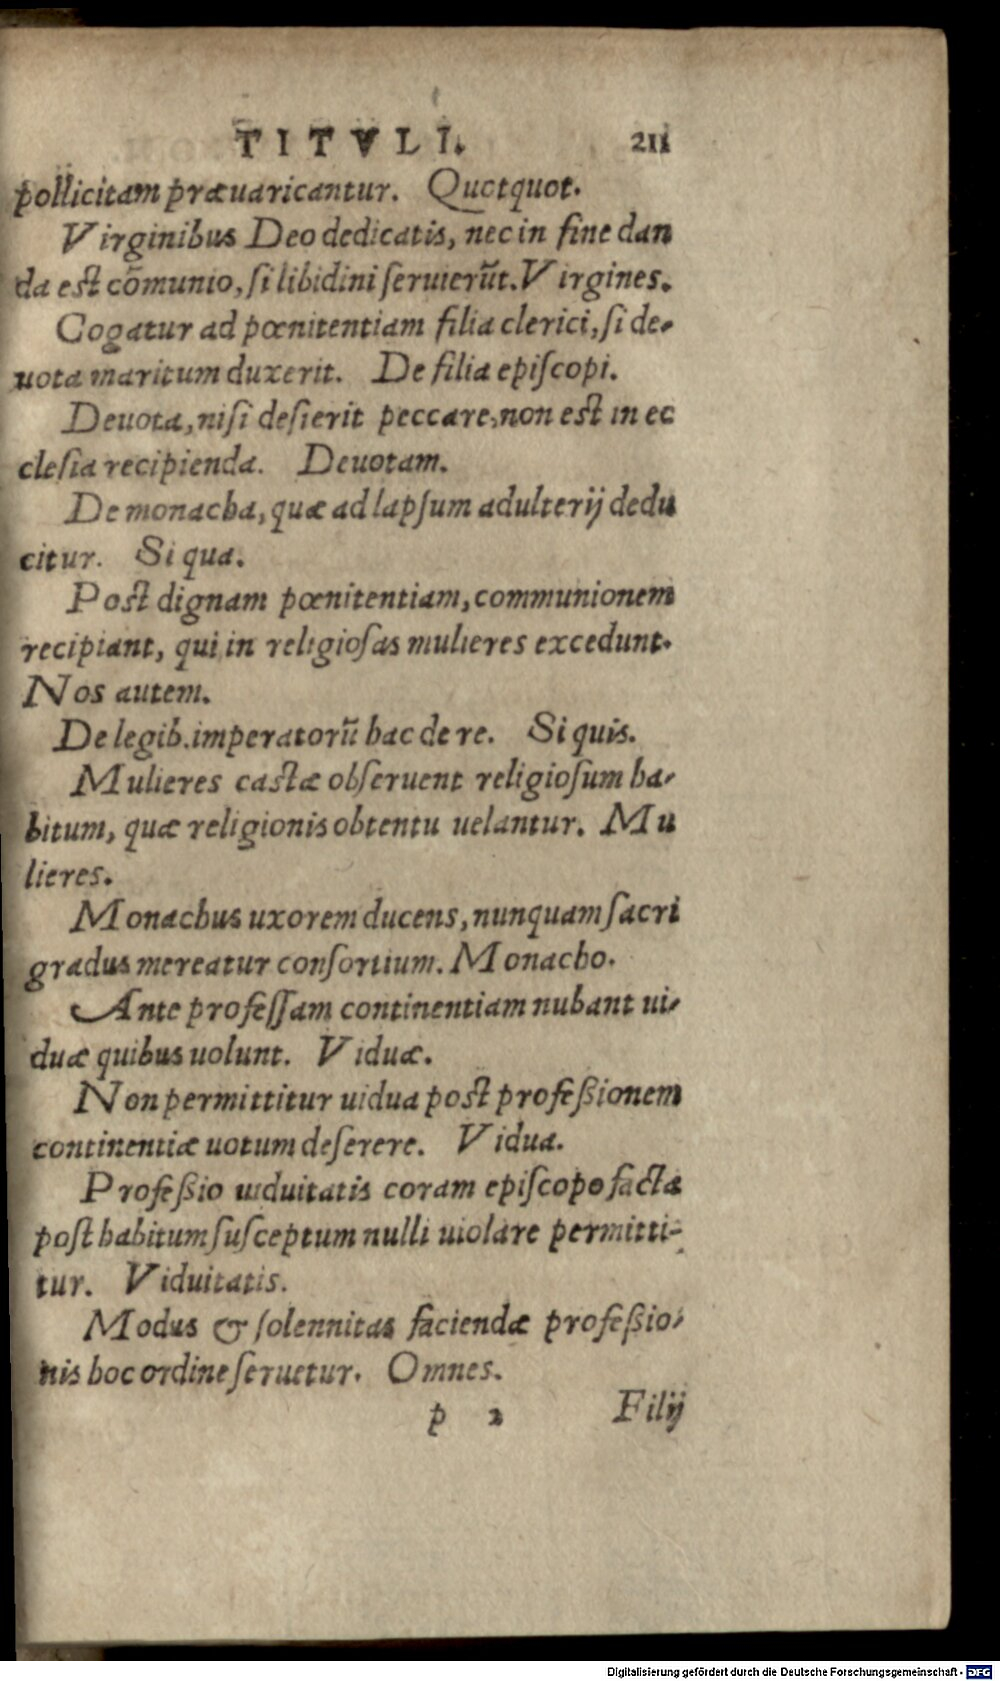 TITVLI. 211
pollicitam præuaricantur. Quotquot.
Virginibus Deo dedicatis, nec in fine dan
da est cõmunio, ſi libidini ſeruierũt. Virgines.
Cogatur ad pœnitentiam filia clerici, ſi de-
uota maritum duxerit. De filia epiſcopi.
Deuota, niſi deſierit peccare, non est in ec
cleſia recipienda. Deuotam.
De monacha, quæ ad lapſum adulterij dedu
citur. Si qua.
Post dignam pœnitentiam, communionem
recipiant, qui in religioſas mulieres excedunt.
Nos autem.
De legib. imperatorũ hac de re. Si quis.
Mulieres castæ obſeruent religioſum ha-
bitum, quæ religionis obtentu uelantur. Mu
lieres.
Monachus uxorem ducens, nunquam ſacri
gradus mereatur conſortium. Monacho.
Ante profeſſam continentiam nubant ui-
duæ quibus uolunt. Viduæ.
Non permittitur uidua post profeßionem
continentiæ uotum deſerere. Vidua.
Profeßio uiduitatis coram epiſcopo facta
post habitum ſuſceptum nulli uiolare permitti-
tur. Viduitatis.
Modus & ſolennitas faciendæ profeßio-
nis hoc ordine ſeruetur. Omnes.
p 2 Filij
Digitalisierung gefördert durch die Deutsche Forschungsgemeinschaft - DFG